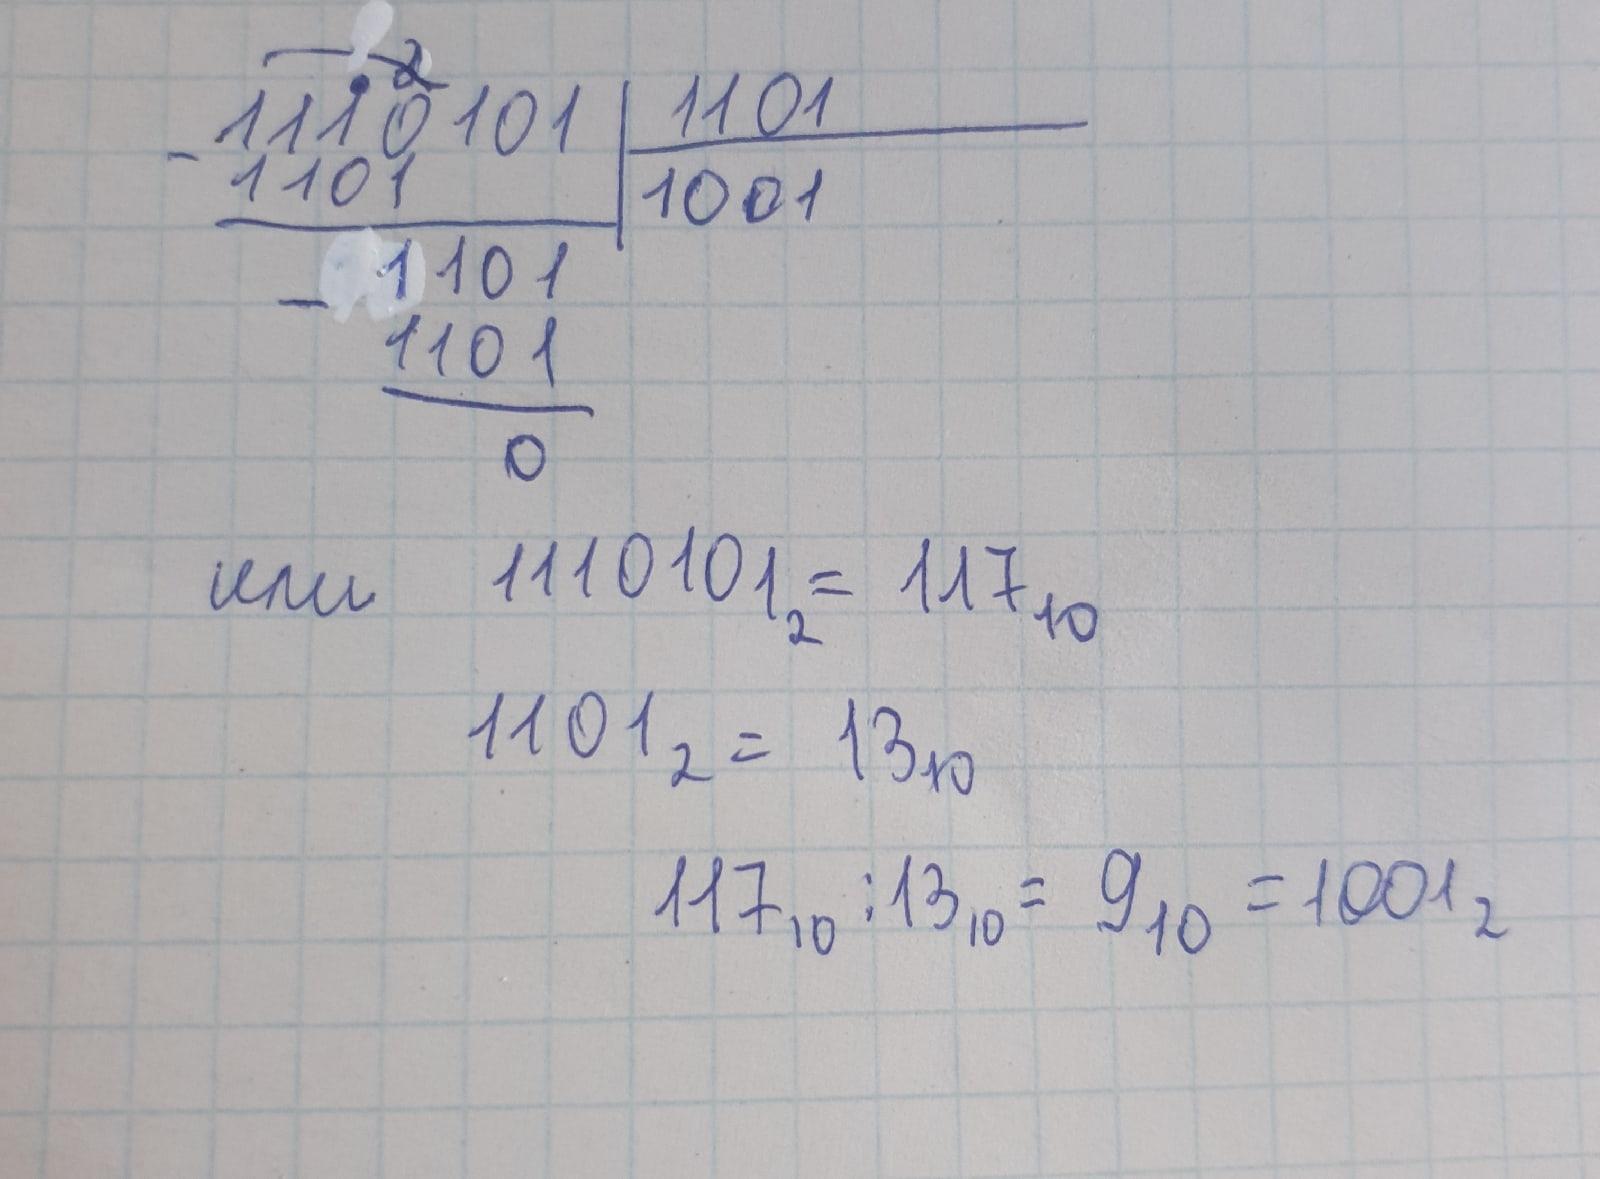 2
1110101 1101
- 1101 1001
- 1101
1101
0
или 1110101₂ = 117₁₀
1101₂ = 13₁₀
117₁₀ : 13₁₀ = 9₁₀ = 1001₂